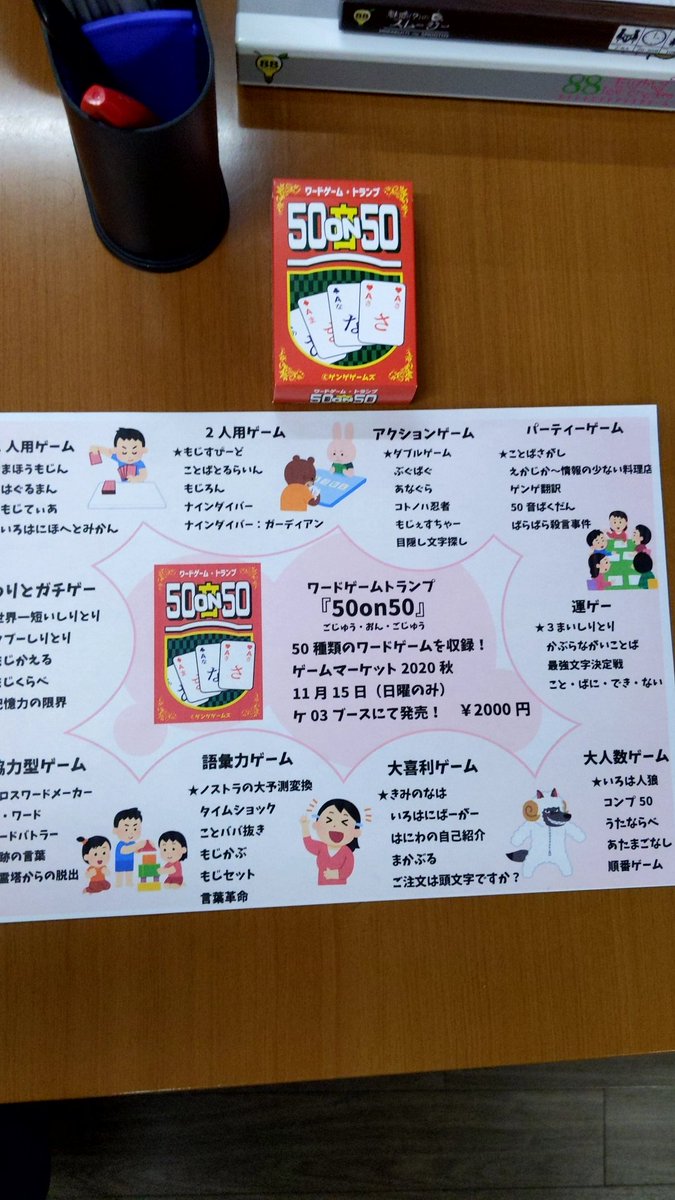 88
88
ワードゲーム・トランプ
50音ON50
A
な
A
さ
©ゲンゲゲームズ
ワードゲーム・トランプ
人用ゲーム
まほうもじん
はぐるまん
もじてぃあ
いろはにほへとみかん
2人用ゲーム
★もじすぴーど
ことばとるらいん
もじろん
ナインダイバー
ナインダイバー:ガーディアン
アクションゲーム
★ダブルゲーム
ぶぐばぐ
あなぐら
コトノハ忍者
もじぇすちゃー
目隠し文字探し
パーティーゲーム
★ことばさがし
えかじか〜情報の少ない料理店
ゲンゲ翻訳
50音ばくだん
ばらばら殺言事件
りとガチゲー
世界一短いしりとり
ブーしりとり
じかえる
じくらべ
記憶力の限界
ワードゲーム・トランプ
50音ON50
©ゲンゲゲームズ
ワードゲームトランプ
『50on50』
ごじゅう・おん・ごじゅう
50種類のワードゲームを収録!
ゲームマーケット2020秋
11月15日(日曜のみ)
ケ03ブースにて発売! ¥2000円
運ゲー
★3まいしりとり
かぶらながいことば
最強文字決定戦
こと・ばに・でき・ない
協力型ゲーム
ロスワードメーカー
・ワード
ードバトラー
跡の言葉
霊塔からの脱出
語彙力ゲーム
★ノストラの大予測変換
タイムショック
ことババ抜き
もじかぶ
もじセット
言葉革命
大喜利ゲーム
★きみのなは
いろはにばーがー
はにわの自己紹介
まかぶる
ご注文は頭文字ですか?
大人数ゲーム
★いろは人狼
コンプ50
うたならべ
あたまごなし
順番ゲーム